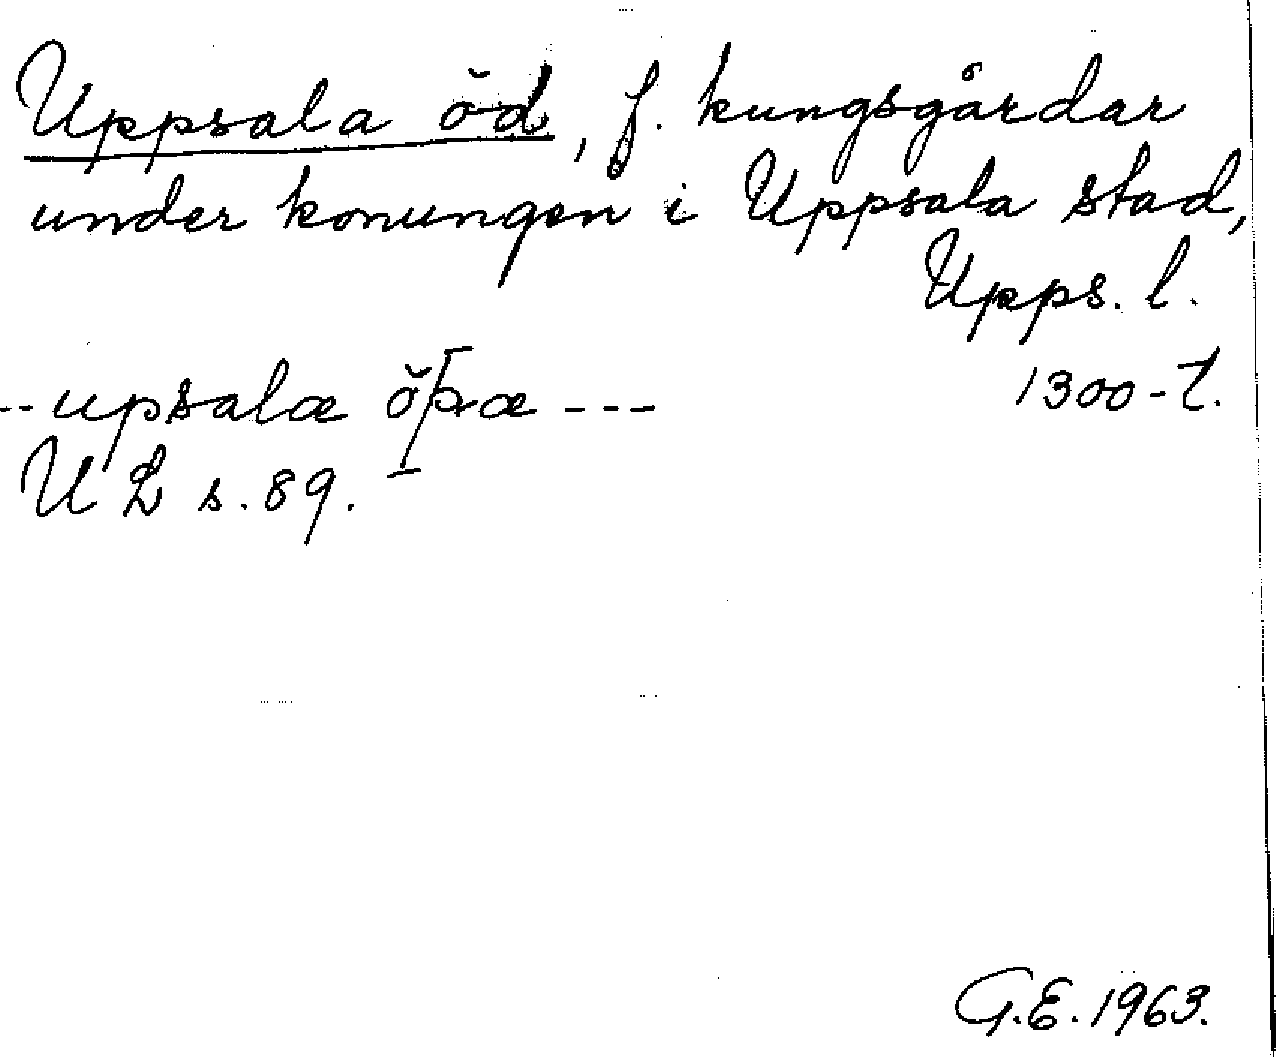 Uppsala öd, f. kungsgårdar
under konungen i Uppsala stad,
Upps. l.
1300-t.
-- upsalæ öþæ ---
UL s. 89.
G.E. 1963.